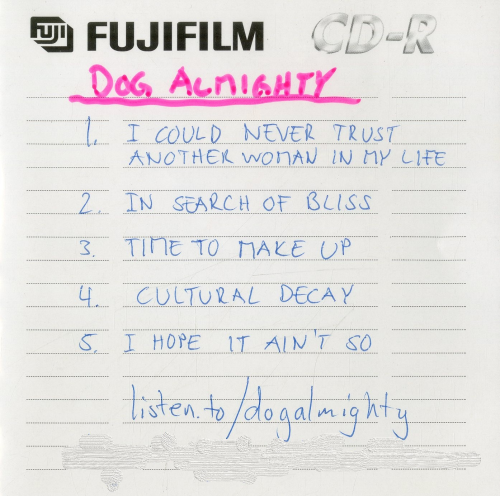 FUJI FUJIFILM CD-R
DOG ALMIGHTY
1. I COULD NEVER TRUST
ANOTHER WOMAN IN MY LIFE
2. IN SEARCH OF BLISS
3. TIME TO MAKE UP
4. CULTURAL DECAY
5. I HOPE IT AIN'T SO
listen.to/dogalmighty